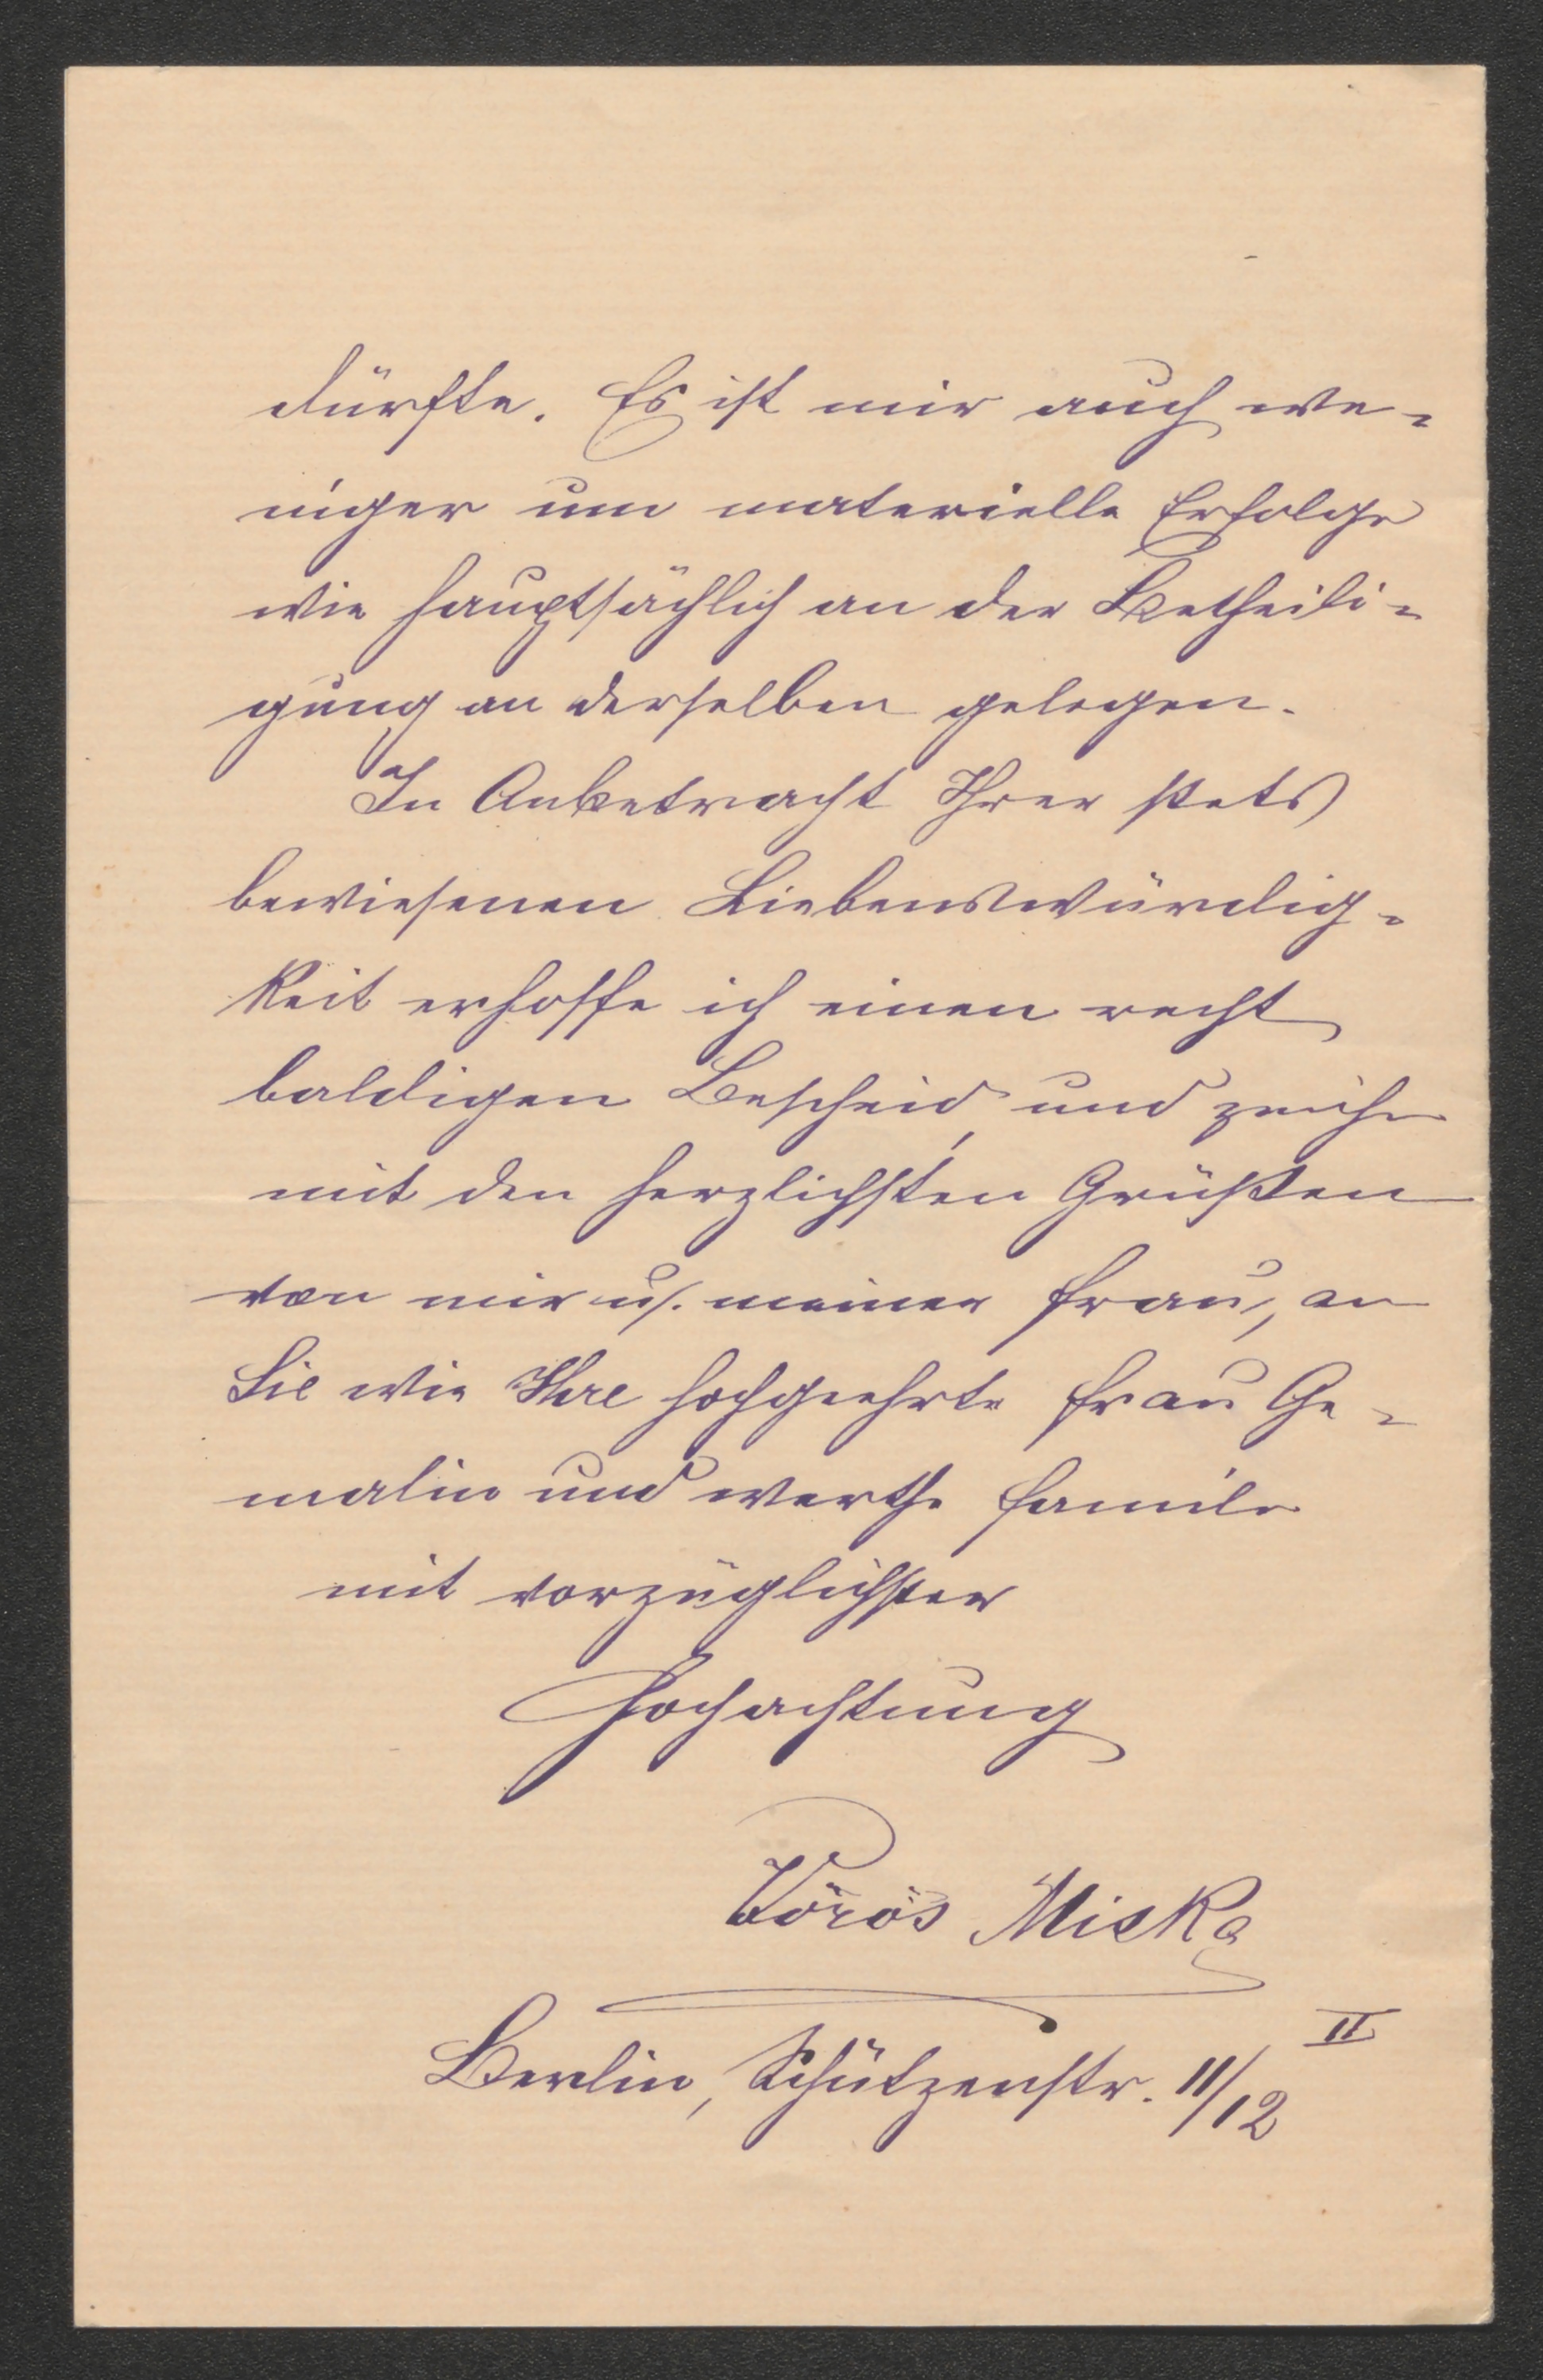 dürfte. Es ist mir auch we-
niger um materielle Erfolge
wie hauptsächlich an der Betheili-
gung an derselben gelegen.
In Anbetracht Ihrer stets
bewiesenen Liebenswürdig-
keit erhoffe ich einen recht
baldigen Bescheid, und zeichne
mit den herzlichsten Grüßen
von mir u/. meiner Frau, an
Sie wie Ihre hochgeehrte Frau Ge-
malin und werthe Familie
mit vorzüglichster
Hochachtung
Vörös Miska
Berlin, Schützenstr. 11/12 II